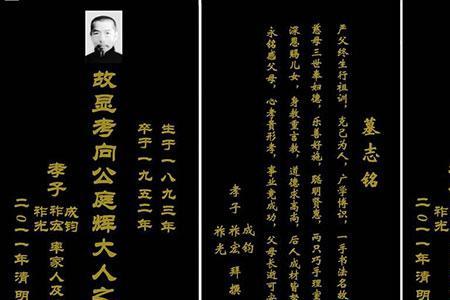 生于一八九三年
卒于一九五二年
故显考向公庭辉大人之
成钧
孝子 祚宏 率家人及
祚光
二〇一一年清明
墓志铭
严父终生行祖训，克己为人，广学博识，一手书名故
慈母三世奉如德，乐善好施，聪明贤惠，两只巧手理
深恩赐儿女，身教重言教，道德求高尚，后人成材皆
永铭感父母，心孝贵形孝，事业竟成功，父母长逝可
成钧
孝子 祚宏 拜撰
祚光
孝
祚光
二〇一一年